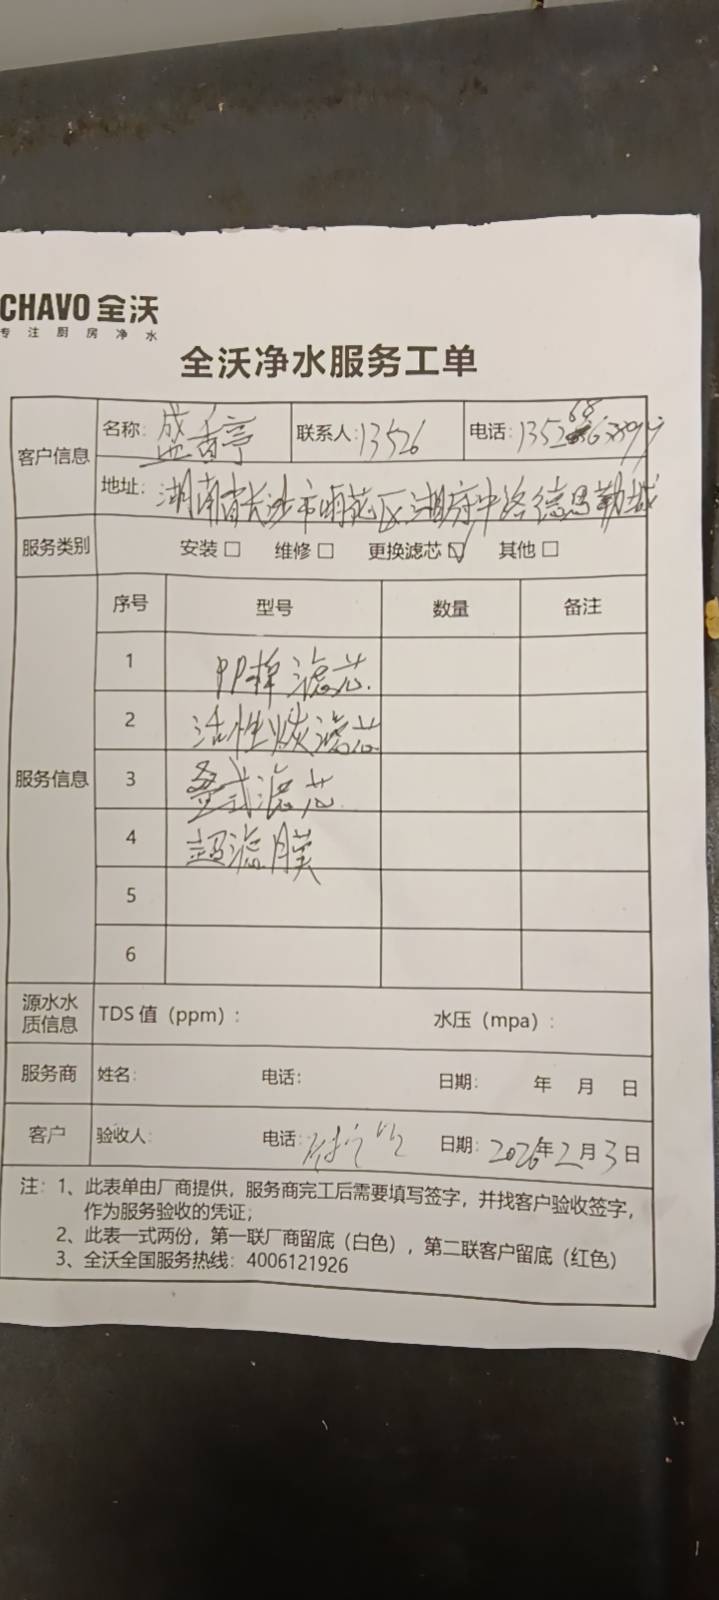 CHAVO 全沃
专注厨房净水
全沃净水服务工单
客户信息 名称: 盛香亭 联系人: 13526 电话:
地址: 湖南省长沙市雨花区湖府中路德思勤城
服务类别 安装□ 维修□ 更换滤芯☑ 其他□
服务信息 序号 型号 数量 备注
1 PP棉滤芯
2 活性炭滤芯
3 叠式滤芯
4 超滤膜
5
6
源水水质信息 TDS 值（ppm）: 水压（mpa）:
服务商 姓名: 电话: 日期: 年 月 日
客户 验收人: 电话: 日期: 2026年2月3日
注: 1、此表单由厂商提供，服务商完工后需要填写签字，并找客户验收签字，
作为服务验收的凭证；
2、此表一式两份，第一联厂商留底（白色），第二联客户留底（红色）
3、全沃全国服务热线: 4006121926